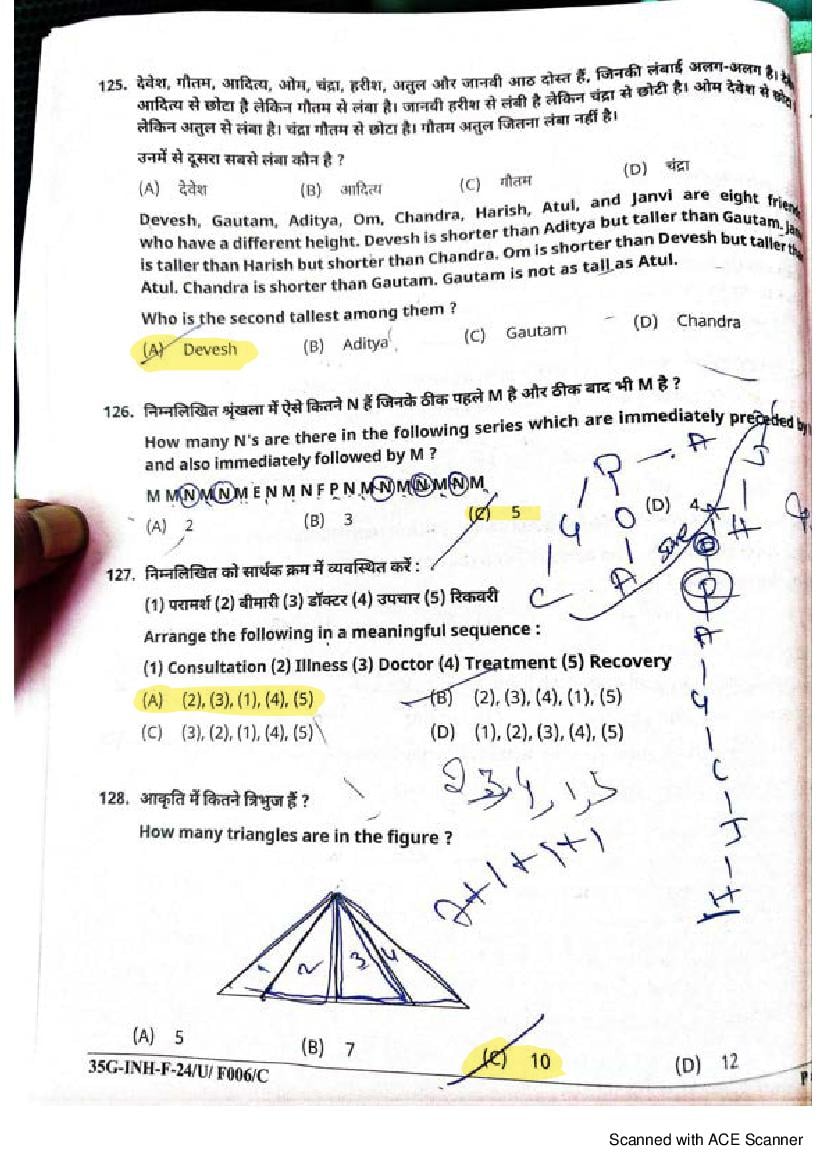 125. देवेश, गौतम, आदित्य, ओम, चंद्रा, हरीश, अतुल और जानवी आठ दोस्त हैं, जिनकी लंबाई अलग-अलग है।
आदित्य से छोटा है लेकिन गौतम से लंबा है। जानवी हरीश से लंबी है लेकिन चंद्रा से छोटी है। ओम देवेश से छोटा
लेकिन अतुल से लंबा है। चंद्रा गौतम से छोटा है। गौतम अतुल जितना लंबा नहीं है।
उनमें से दूसरा सबसे लंबा कौन है ?
(A) देवेश (B) आदित्य (C) गौतम (D) चंद्रा
Devesh, Gautam, Aditya, Om, Chandra, Harish, Atul, and Janvi are eight friend
who have a different height. Devesh is shorter than Aditya but taller than Gautam. Jan
is taller than Harish but shorter than Chandra. Om is shorter than Devesh but taller tha
Atul. Chandra is shorter than Gautam. Gautam is not as tall as Atul.
Who is the second tallest among them ?
(A) Devesh (B) Aditya (C) Gautam (D) Chandra
126. निम्नलिखित श्रृंखला में ऐसे कितने N हैं जिनके ठीक पहले M है और ठीक बाद भी M है ?
How many N's are there in the following series which are immediately preceded by
and also immediately followed by M ?
M M N M N M E N M N F P N M N M N M N M
(A) 2 (B) 3 (C) 5 (D) 4
127. निम्नलिखित को सार्थक क्रम में व्यवस्थित करें :
(1) परामर्श (2) बीमारी (3) डॉक्टर (4) उपचार (5) रिकवरी
Arrange the following in a meaningful sequence :
(1) Consultation (2) Illness (3) Doctor (4) Treatment (5) Recovery
(A) (2), (3), (1), (4), (5) (B) (2), (3), (4), (1), (5)
(C) (3), (2), (1), (4), (5) (D) (1), (2), (3), (4), (5)
2,3,4,1,5
128. आकृति में कितने त्रिभुज हैं ?
How many triangles are in the figure ?
7+1+1+1
1 2 3 4
(A) 5 (B) 7 (C) 10 (D) 12
35G-INH-F-24/U/ F006/C
Scanned with ACE Scanner